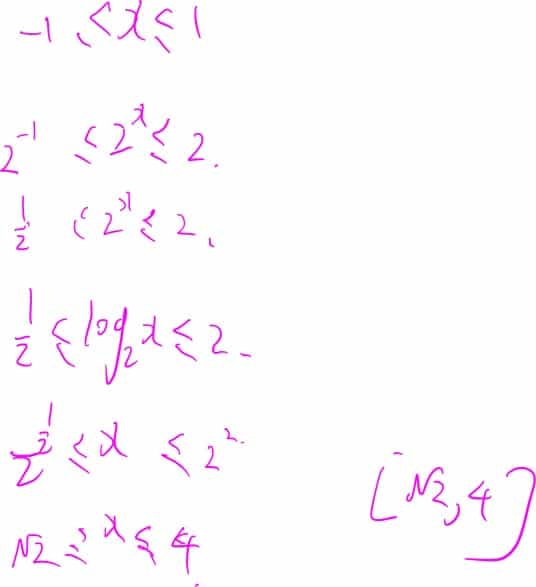 -1 ≤ x ≤ 1
2^{-1} ≤ 2^x ≤ 2.
1/2 ≤ 2^x ≤ 2.
1/2 ≤ log_2 x ≤ 2.
2^{1/2} ≤ x ≤ 2^2.
√2 ≤ x ≤ 4
[√2, 4]